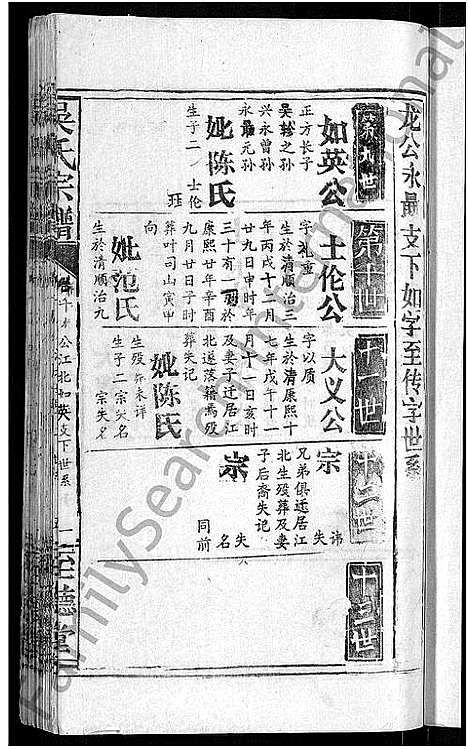 龙公永最支下如字至传字世系
第九世
如英公
正方长子
吴轸之孙
兴永曾孙
永最元孙
妣陈氏
生子二 士伦
珏
第十世
士伦公
字礼重
生於清顺治三
年丙戌十月
廿九日申时年
三十有二殁於
康熙廿年辛酉
九月廿日子时
葬叶司山寅甲
向
妣范氏
生於清顺治九
十一世
大义公
字以质
生於清康熙十
七年戊午十一
月十一日亥时
及妻子迁居江
北遂落籍焉殁
葬失记
妣陈氏
生殁葬未详
生子二宗失名
宗失名
十二世
宗
讳失
兄弟俱迁居江
北生殁葬及妻
子后裔失记
宗
失名
同前
十三世
吴氏宗谱
公江北如英支下世系
一
至德堂
FamilySearch International